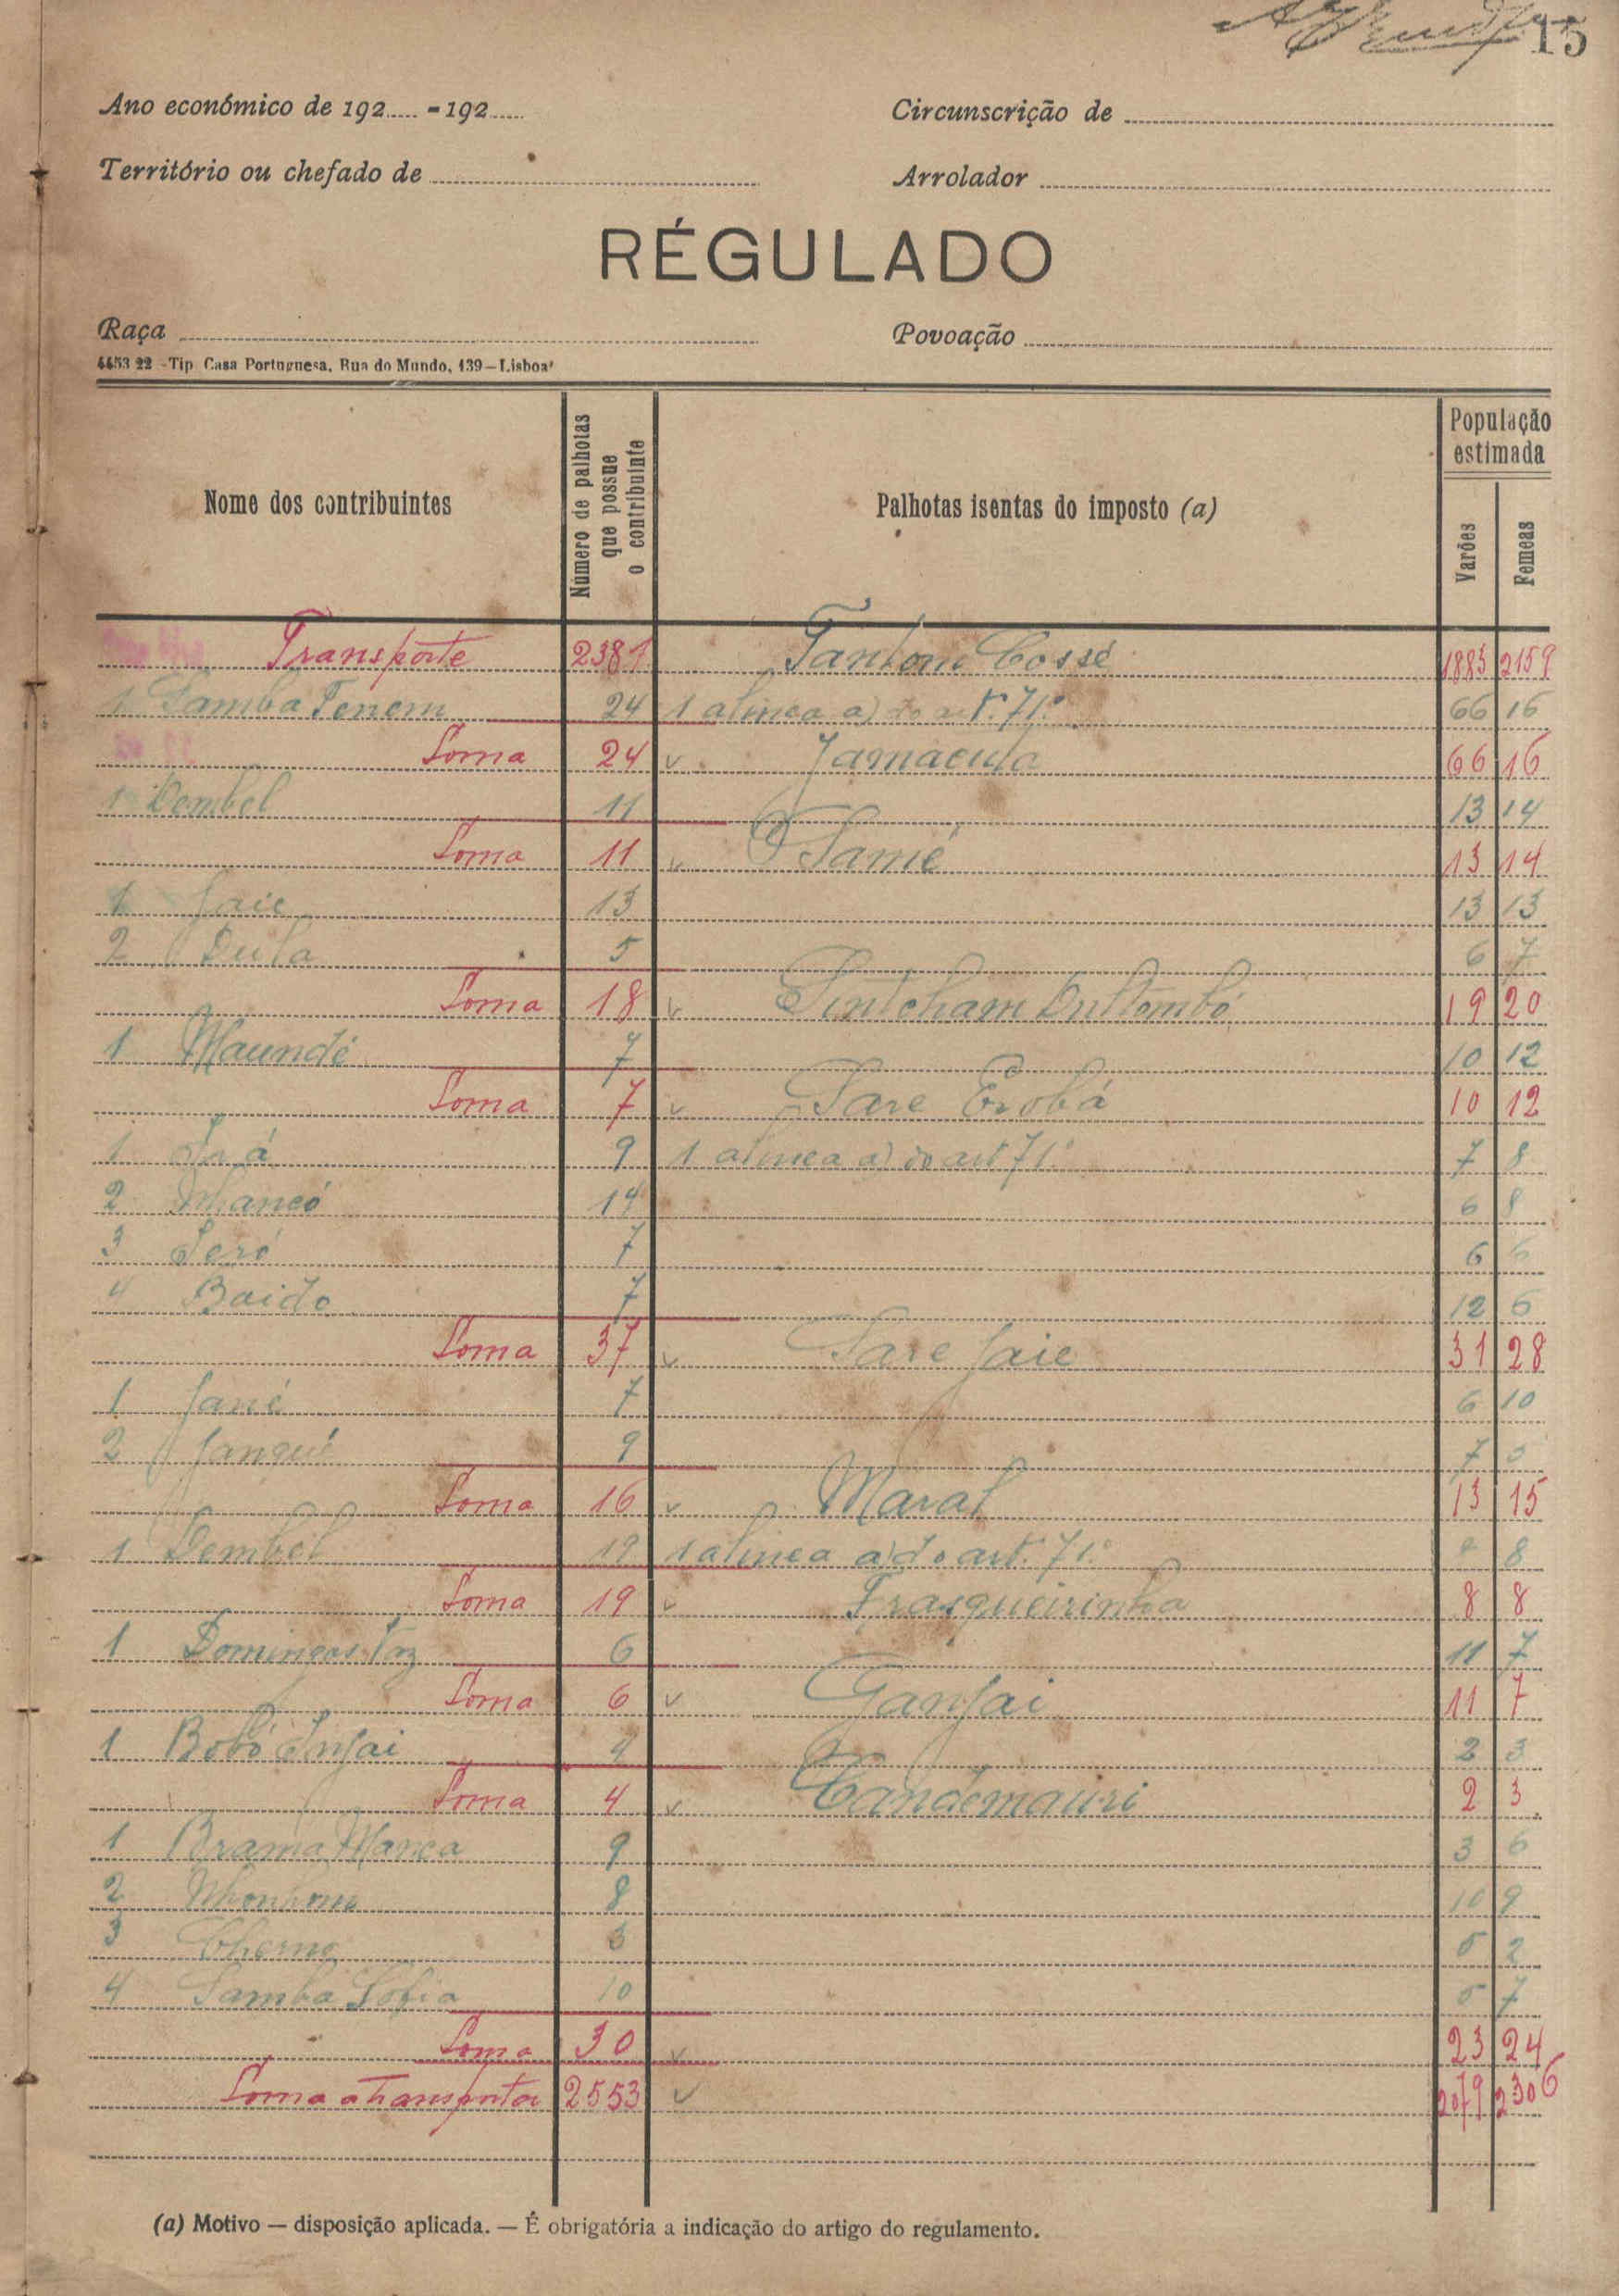 15
Ano económico de 192..... - 192......
Circunscrição de
Território ou chefado de
Arrolador
RÉGULADO
Raça
Povoação
4453 22 - Tip Casa Portuguesa, Rua do Mundo, 139 - Lisboa
Nome dos contribuintes
Número de palhotas que possue o contribuinte
Palhotas isentas do imposto (a)
População estimada
Varões
Femeas
Transporte 2381 Cossé 1883 2159
1 Samba Tenem 24 1 alinea a) do art. 71º 66 16
Soma 24 v Jamacuta 66 16
1 Dembel 11 13 14
Soma 11 v Samé 13 14
1 Jaie 13 13 13
2 Dula 5 6 7
Soma 18 v Sintcham 19 20
1 Maundé 7 10 12
Soma 7 v Sare 10 12
1 9 1 alinea a) do art 71º 7 8
2 14 6 8
3 Seró 7 6 6
4 Baido 7 12 6
Soma 37 v Sare Jaie 31 28
1 Jané 7 6 10
2 Jangué 9 7 5
Soma 16 v Marat 13 15
1 Dembel 19 1 alinea a) do art. 71º 8 8
Soma 19 v Frasqueirinha 8 8
1 Domingos Vaz 6 11 7
Soma 6 v Ganjai 11 7
1 Bobó Injai 4 2 3
Soma 4 v Candemauri 2 3
1 Brama Manca 9 3 6
2 8 10 9
3 Cherno 3 5 2
4 Samba Sofia 10 5 7
Soma 30 v 23 24
Soma a transportar 2553 v 2079 2306
(a) Motivo — disposição aplicada. — É obrigatória a indicação do artigo do regulamento.